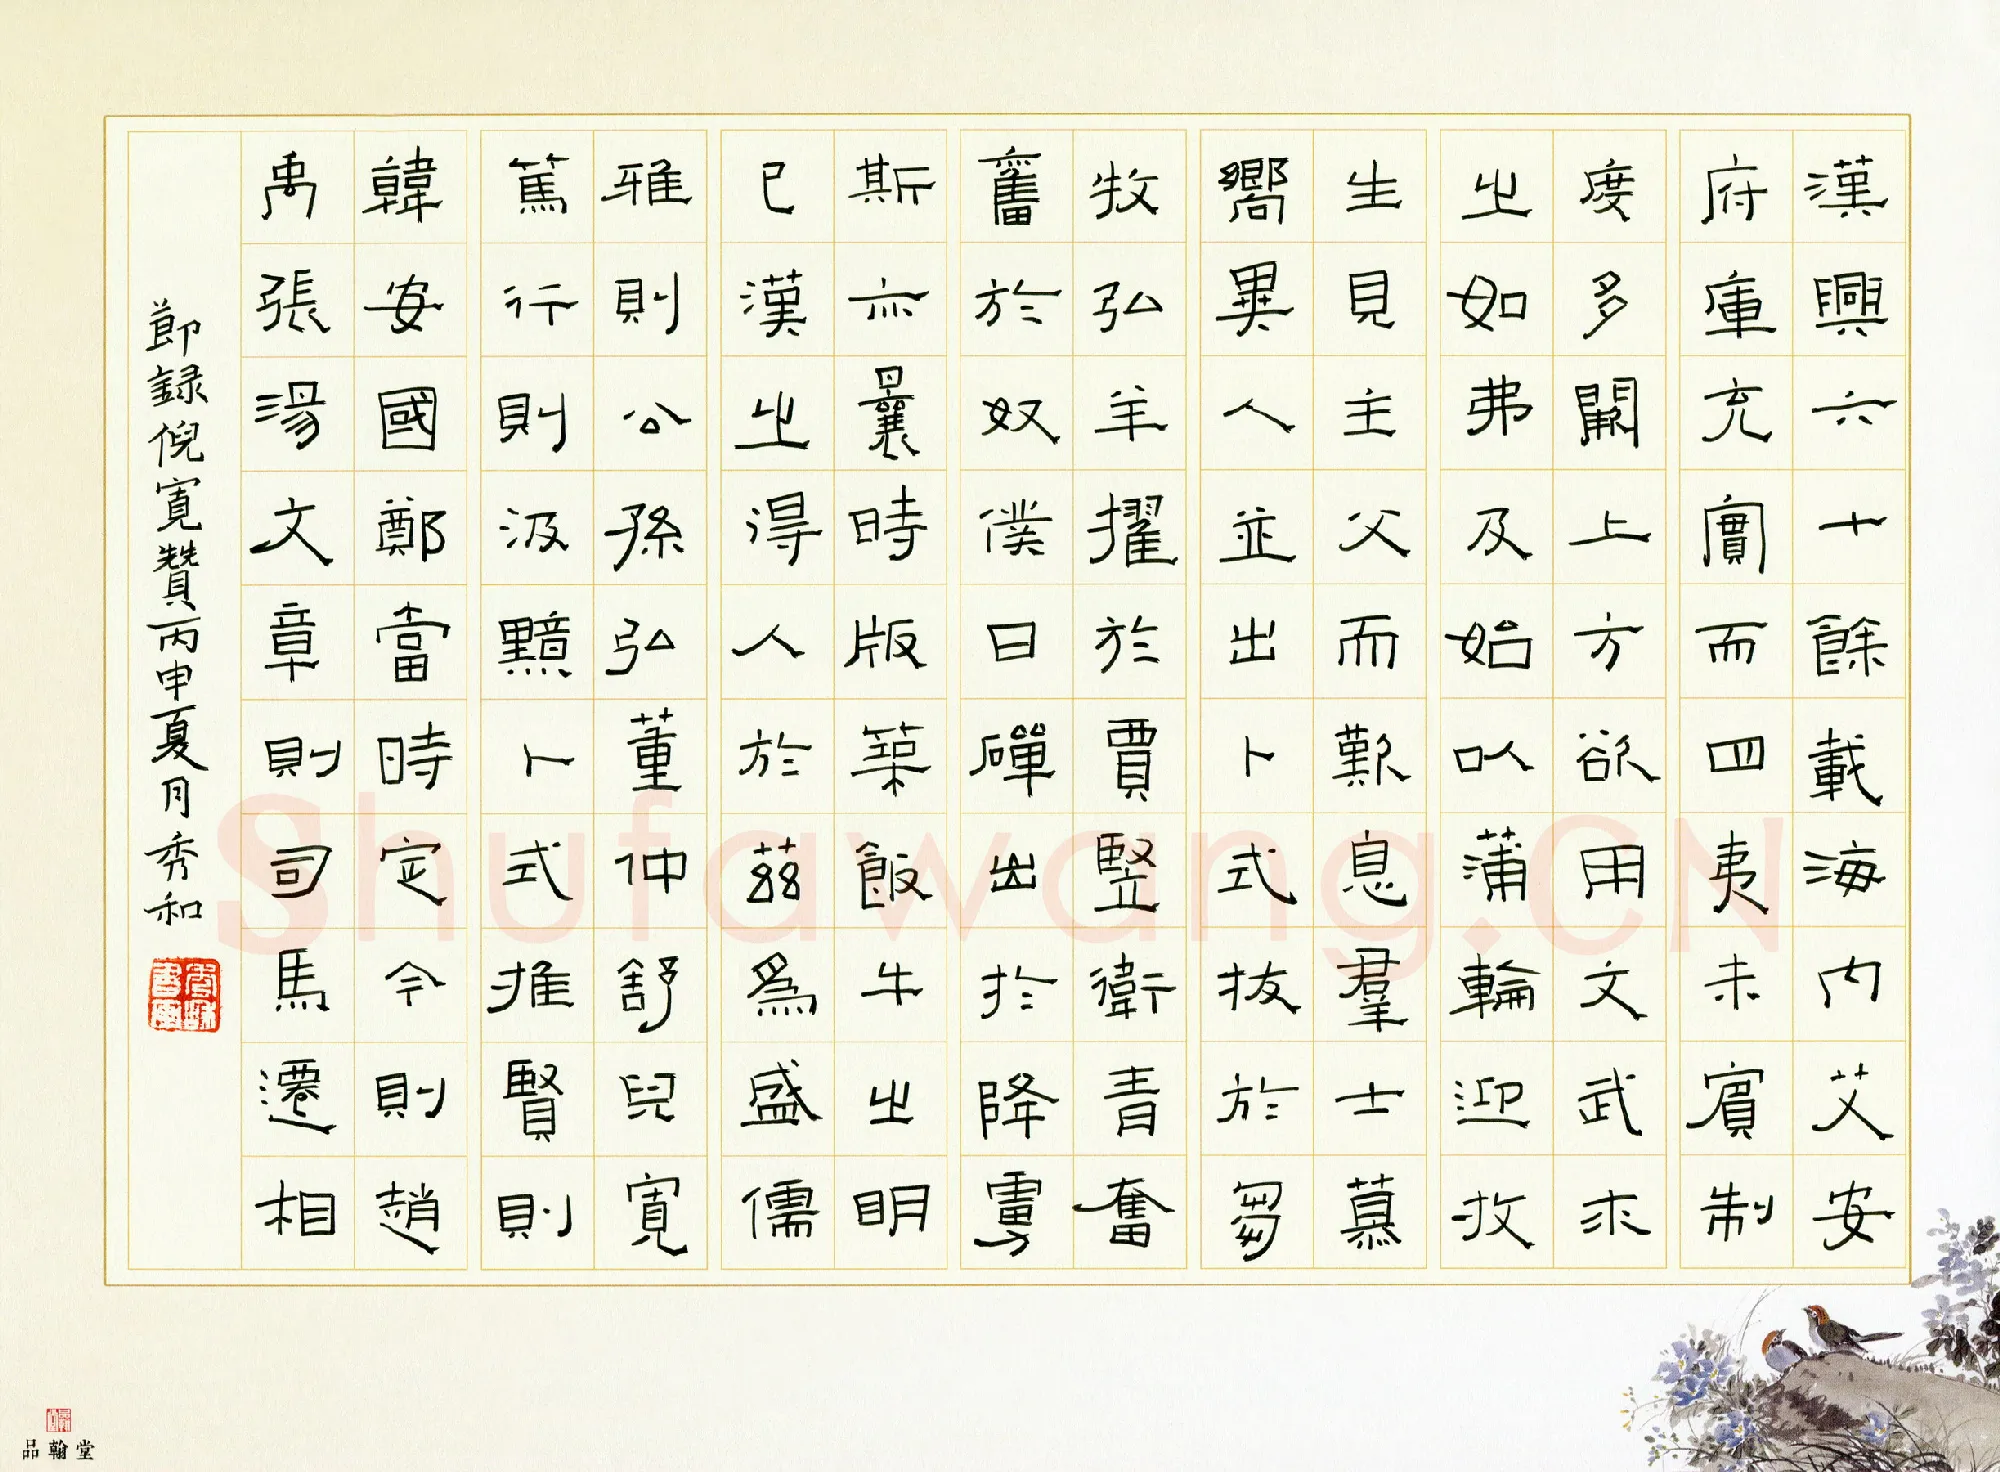 漢興六十餘載海内艾安
府庫充實而四夷未賓制
度多闕上方欲用文武求
之如弗及始以蒲輪迎枚
生見主父而歎息羣士慕
嚮異人並出卜式拔於芻
牧弘羊擢於賈豎衛青奮
奮於奴僕日磾出於降虜
斯亦曩時版築飯牛之明
已漢之得人於茲爲盛儒
雅則公孫弘董仲舒兒寬
篤行則汲黯卜式推賢則
韓安國鄭當時定令則趙
禹張湯文章則司馬遷相
節録倪寬贊丙申夏月秀和
品翰堂
Shufawang.CN